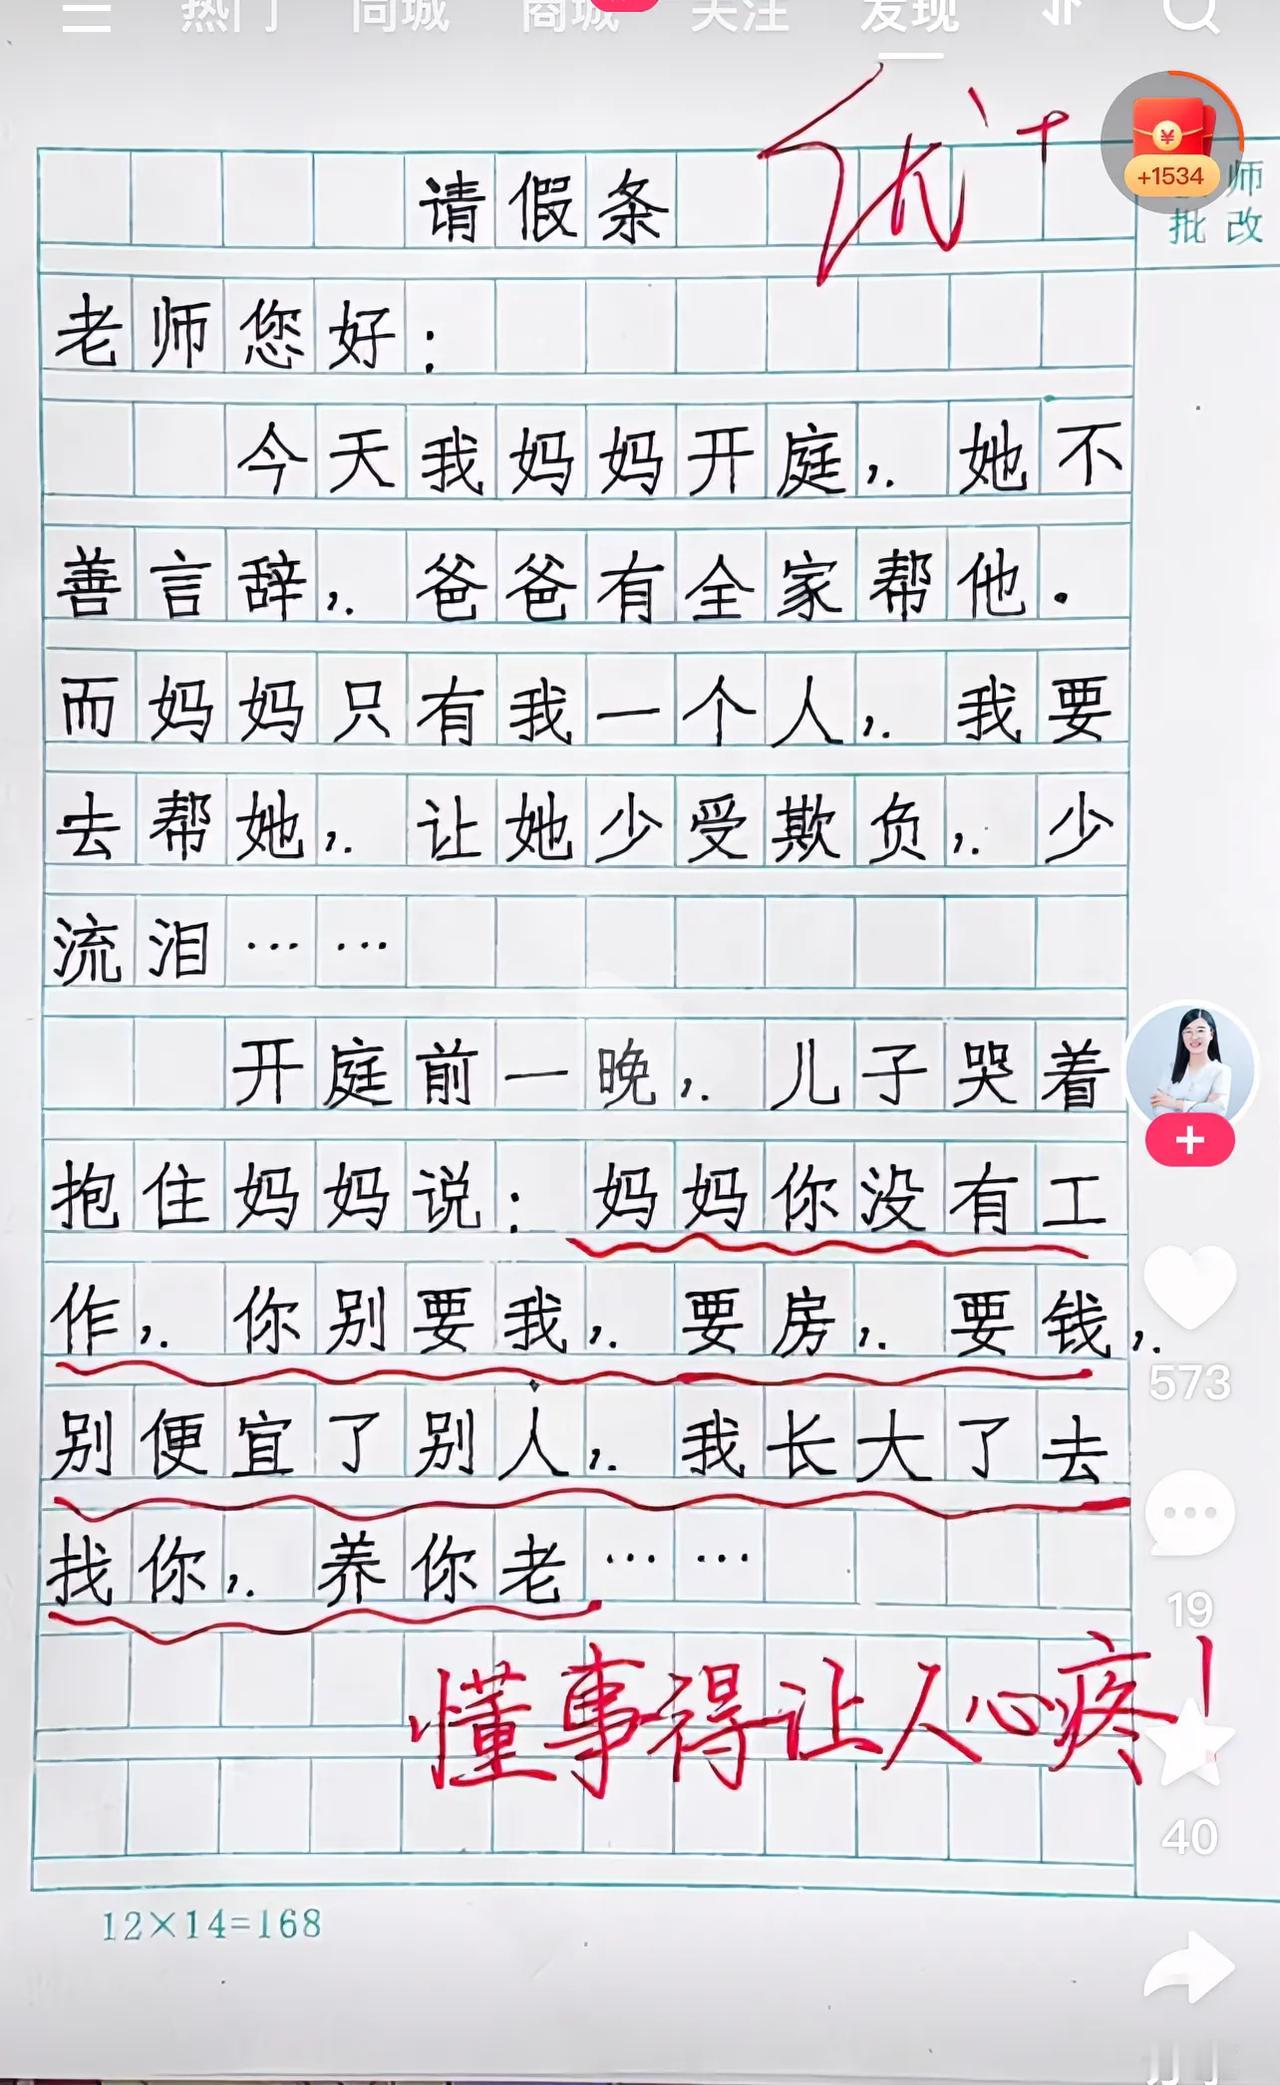 热门 同城 商城 关注 发现
优+
+1534
师
批改
请假条
老师您好：
今天我妈妈开庭，她不
善言辞，爸爸有全家帮他.
而妈妈只有我一个人，我要
去帮她，让她少受欺负，少
流泪……
开庭前一晚，儿子哭着
抱住妈妈说：妈妈你没有工
作，你别要我，要房，要钱，
别便宜了别人，我长大了去
找你，养你老……
懂事得让人心疼！
573
19
40
12×14=168